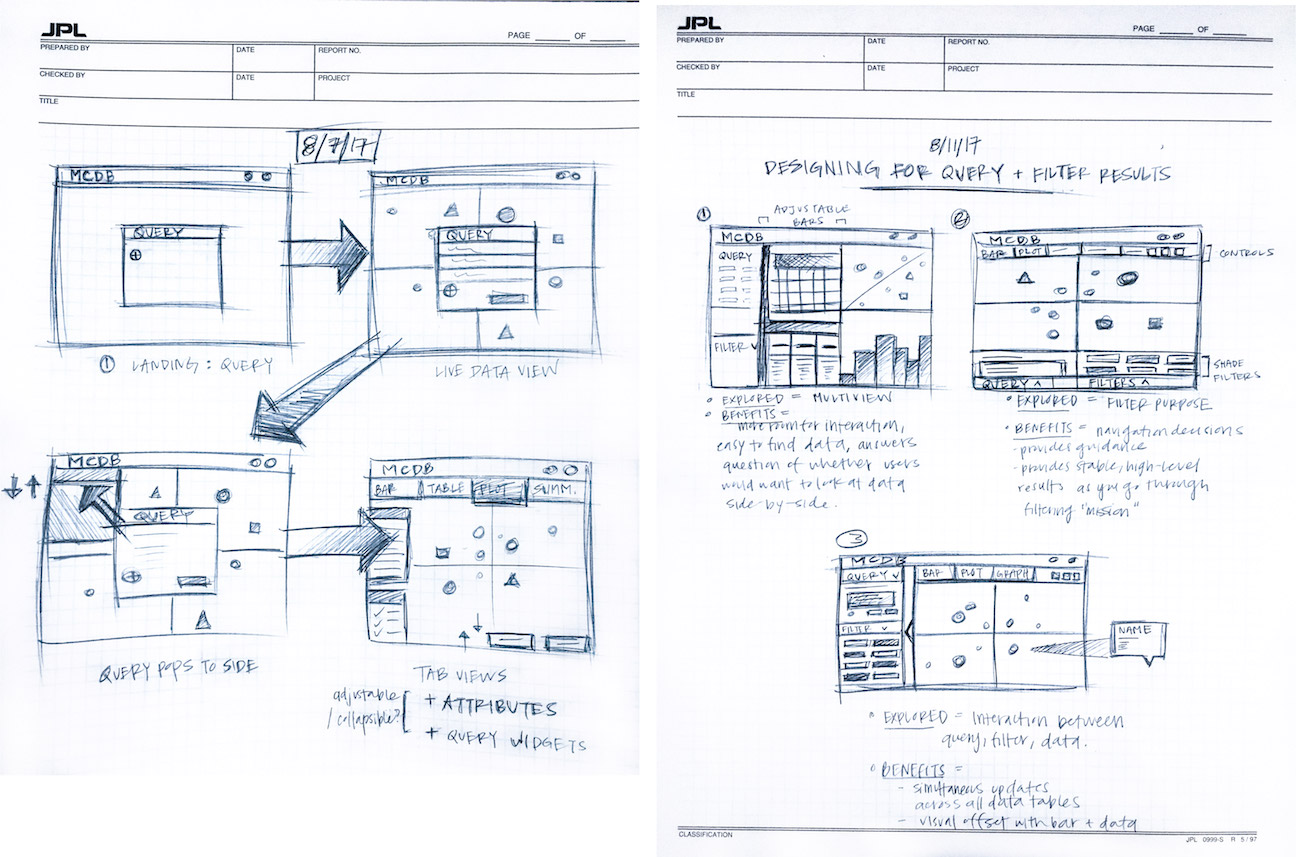 JPL
PAGE ____ OF ____
PREPARED BY
DATE
REPORT NO.
CHECKED BY
DATE
PROJECT
TITLE
8/7/17
MCDB
QUERY
① LANDING: QUERY
MCDB
QUERY
LIVE DATA VIEW
MCDB
QUERY
QUERY POPS TO SIDE
MCDB
BAR TABLE PLOT SUMM.
TAB VIEWS
adjustable
/collapsible?
+ ATTRIBUTES
+ QUERY WIDGETS
JPL
PAGE ____ OF ____
PREPARED BY
DATE
REPORT NO.
CHECKED BY
DATE
PROJECT
TITLE
8/11/17
DESIGNING FOR QUERY + FILTER RESULTS
①
ADJUSTABLE
BARS
MCDB
QUERY
FILTER
• EXPLORED = MULTIVIEW
• BENEFITS =
more room for interaction,
easy to find data, answers
question of whether users
would want to look at data
side-by-side.
②
MCDB
BAR PLOT
CONTROLS
SHADE
FILTERS
QUERY ^ FILTERS ^
• EXPLORED = FILTER PURPOSE
• BENEFITS = navigation decisions
- provides guidance
- provides stable, high-level
results as you go through
filtering "mission"
③
MCDB
QUERY
BAR PLOT GRAPH
FILTER
NAME
• EXPLORED = Interaction between
query, filter, data.
• BENEFITS =
- simultaneous updates
across all data tables
- visual offset with bar + data
CLASSIFICATION
JPL 0999-S R 5/97